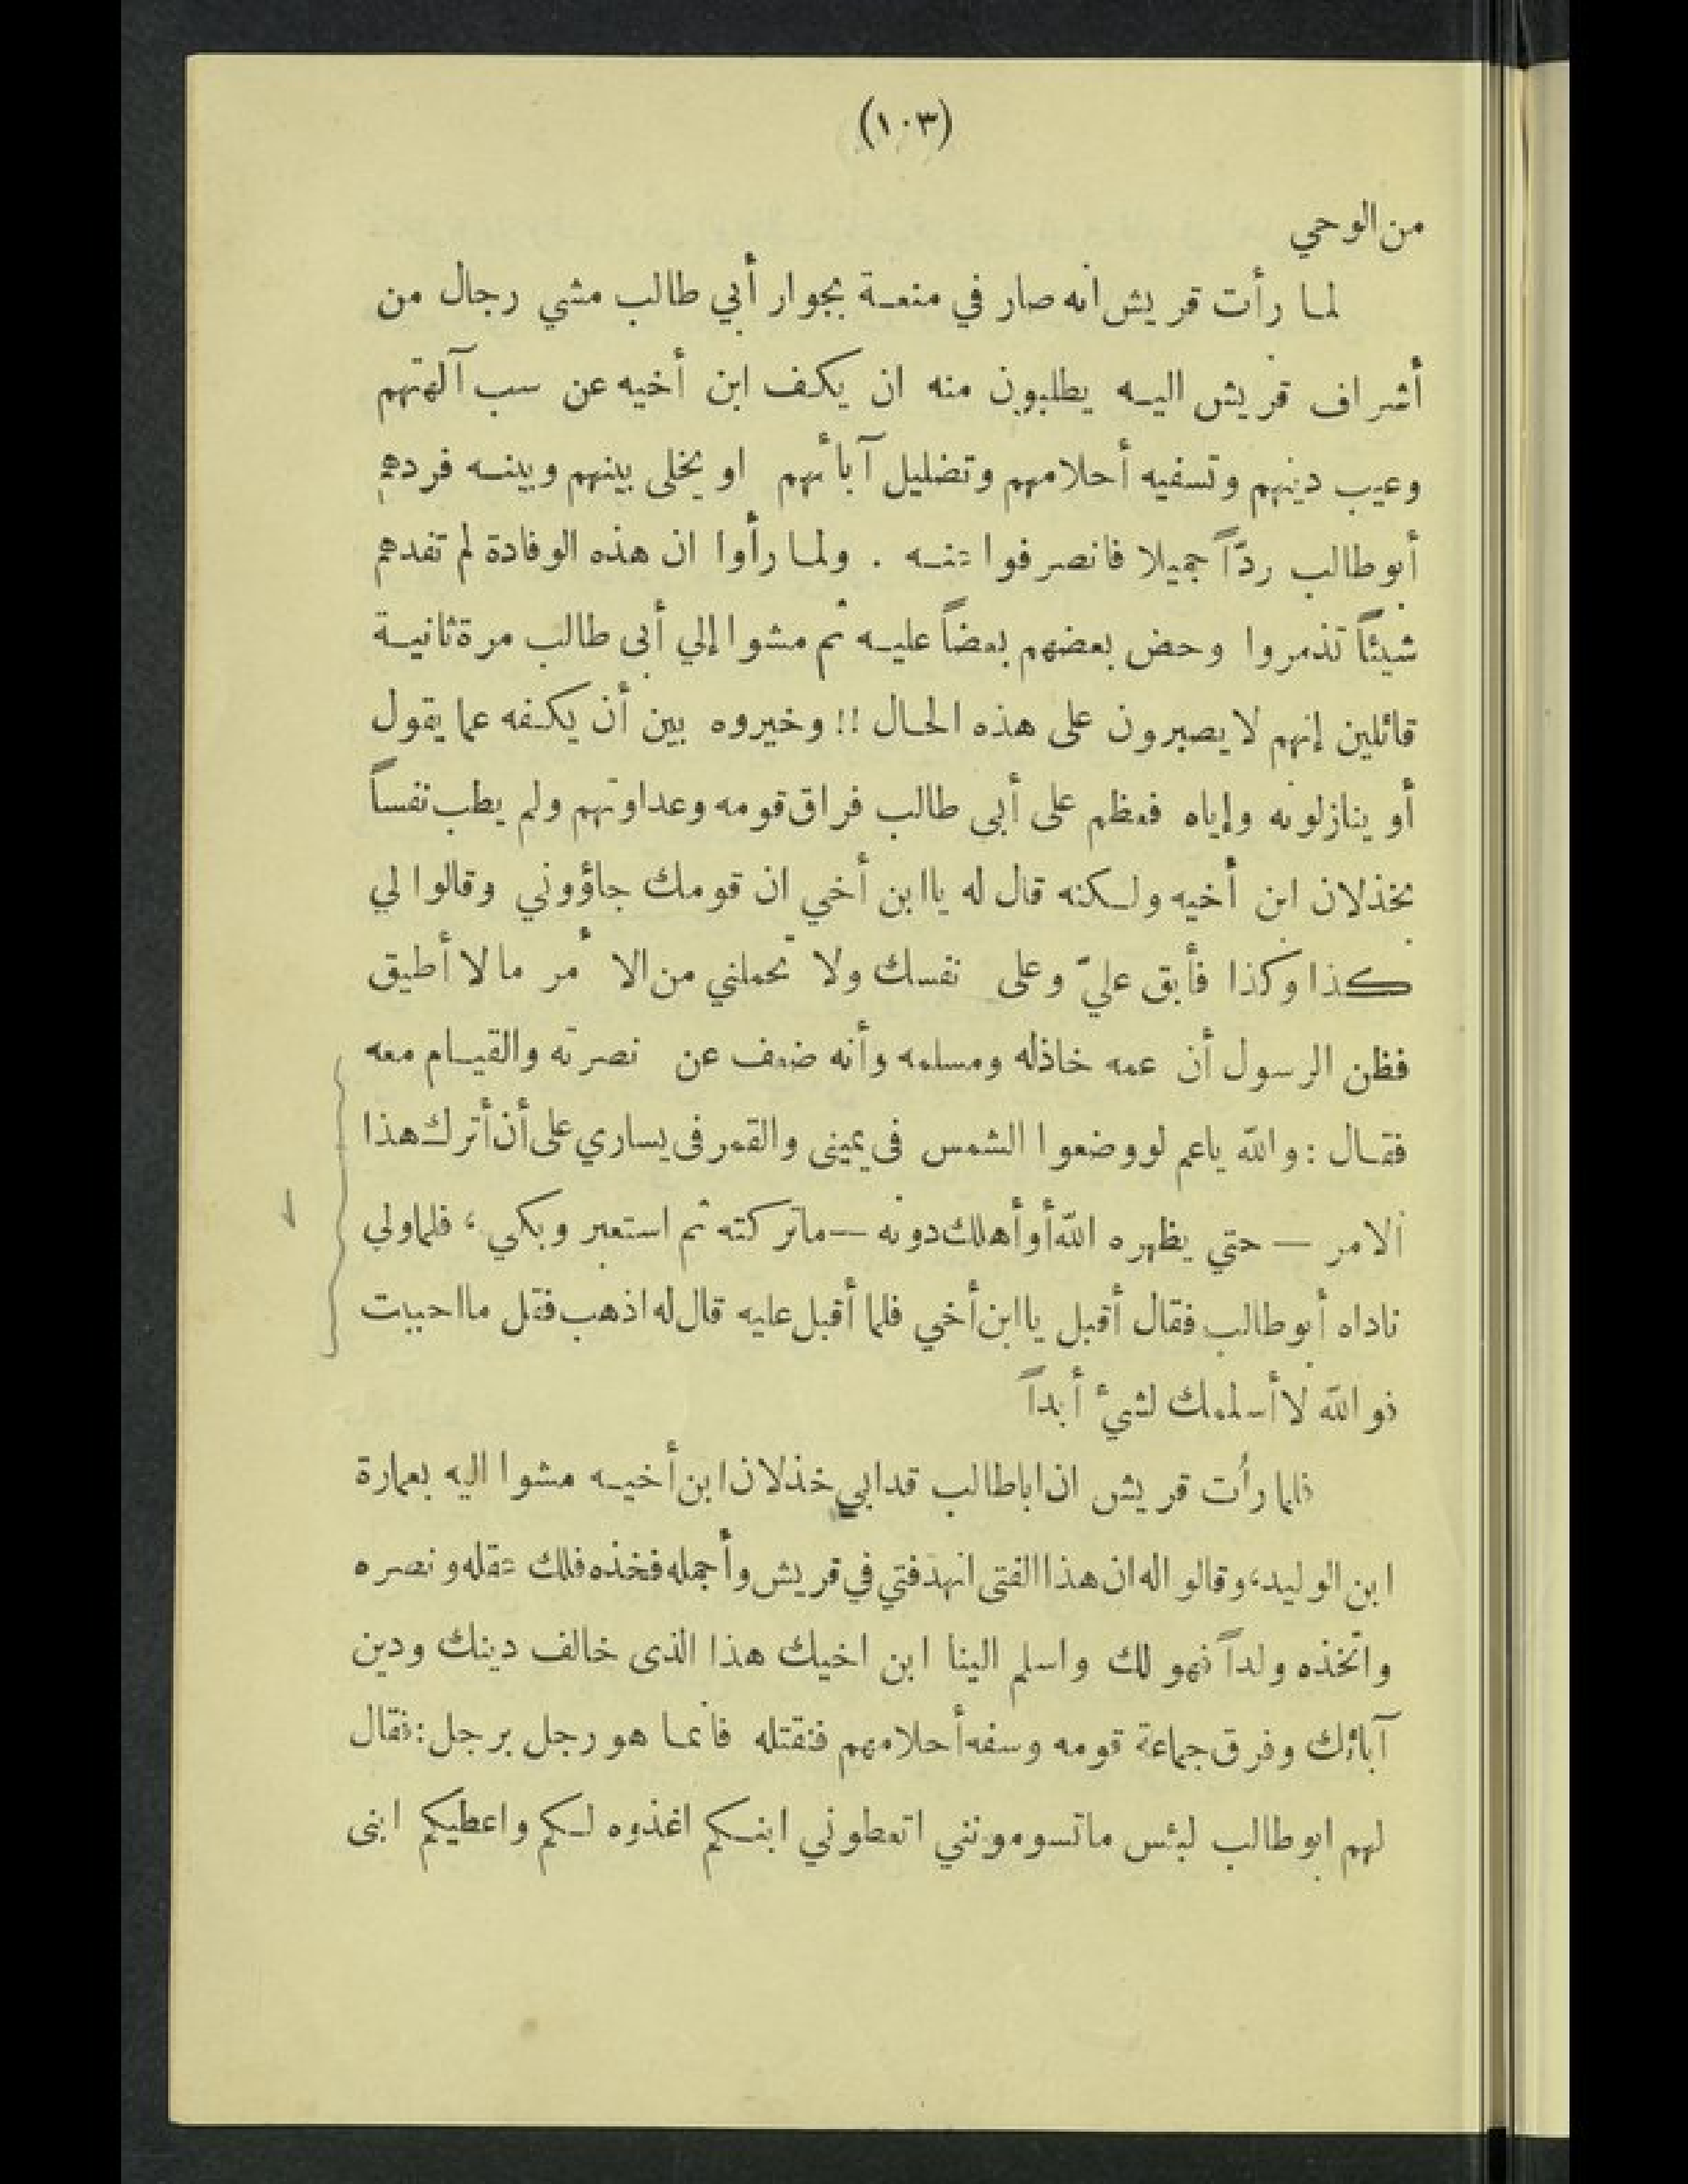 (١٠٣)
من الوحي
لما رأت قريش انه صار في منعة بجوار أبي طالب مشي رجال من
أشراف قريش اليه يطلبون منه ان يكف ابن أخيه عن سب آلهتهم
وعيب دينهم وتسفيه أحلامهم وتضليل آبأئهم او يخلى بينهم وبينه فردهم
أبو طالب ردّاً جميلا فانصرفوا عنه . ولما رأوا ان هذه الوفادة لم تفدهم
شيئاً تذمروا وحض بعضهم بعضاً عليه ثم مشوا إلي أبى طالب مرة ثانية
قائلين إنهم لا يصبرون على هذه الحال !! وخيروه بين أن يكفه عما يقول
أو ينازلونه وإياه فعظم على أبى طالب فراق قومه وعداوتهم ولم يطب نفساً
بخذلان ابن أخيه ولكنه قال له يا ابن أخي ان قومك جاؤوني وقالوا لي
كذا وكذا فأبق عليّ وعلى نفسك ولا تحملني من الأمر ما لا أطيق
فظن الرسول أن عمه خاذله ومسلمه وأنه ضعف عن نصرته والقيام معه
فقال : والله ياعم لو وضعوا الشمس فى يمينى والقمر فى يساري على أن أترك هذا
الامر — حتي يظهره الله أو أهلك دونه — ماتركته ثم استعبر وبكي ، فلما ولي
ناداه أبو طالب فقال أقبل يا ابن أخي فلما أقبل عليه قال له اذهب فقل ما احببت
فو الله لا أسلمك لشيء أبداً
فلما رأت قريش ان ابا طالب قد ابي خذلان ابن أخيه مشوا اليه بعمارة
ابن الوليد، وقالوا له ان هذا الفتى انهد فتي في قريش وأجمله فخذه فلك عقله ونصره
واتخذه ولداً فهو لك واسلم الينا ابن اخيك هذا الذى خالف دينك ودين
آبائك وفرق جماعة قومه وسفه أحلامهم فنقتله فانما هو رجل برجل : فقال
لهم ابو طالب لبئس ماتسومونني اتعطوني ابنكم اغذوه لكم واعطيكم ابنى